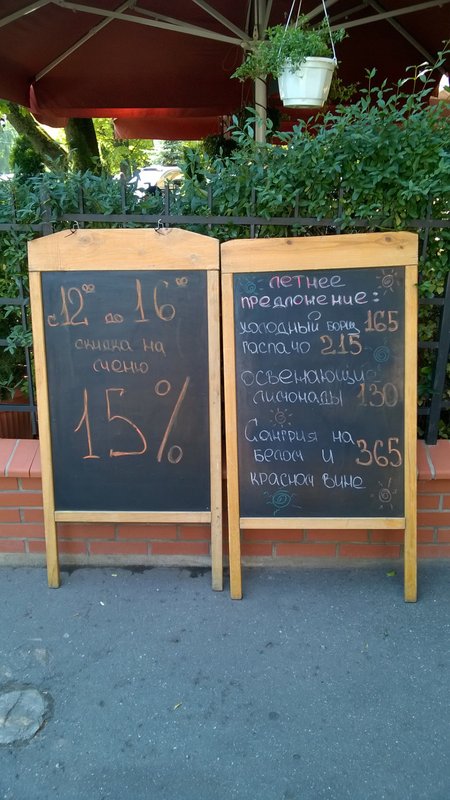 с 12⁰⁰ до 16⁰⁰
скидка на
меню
15%
Летнее
предложение:
холодный борщ 165
гаспачо 215
освежающие
лимонады 130
Сангрия на
белом и 365
красном вине